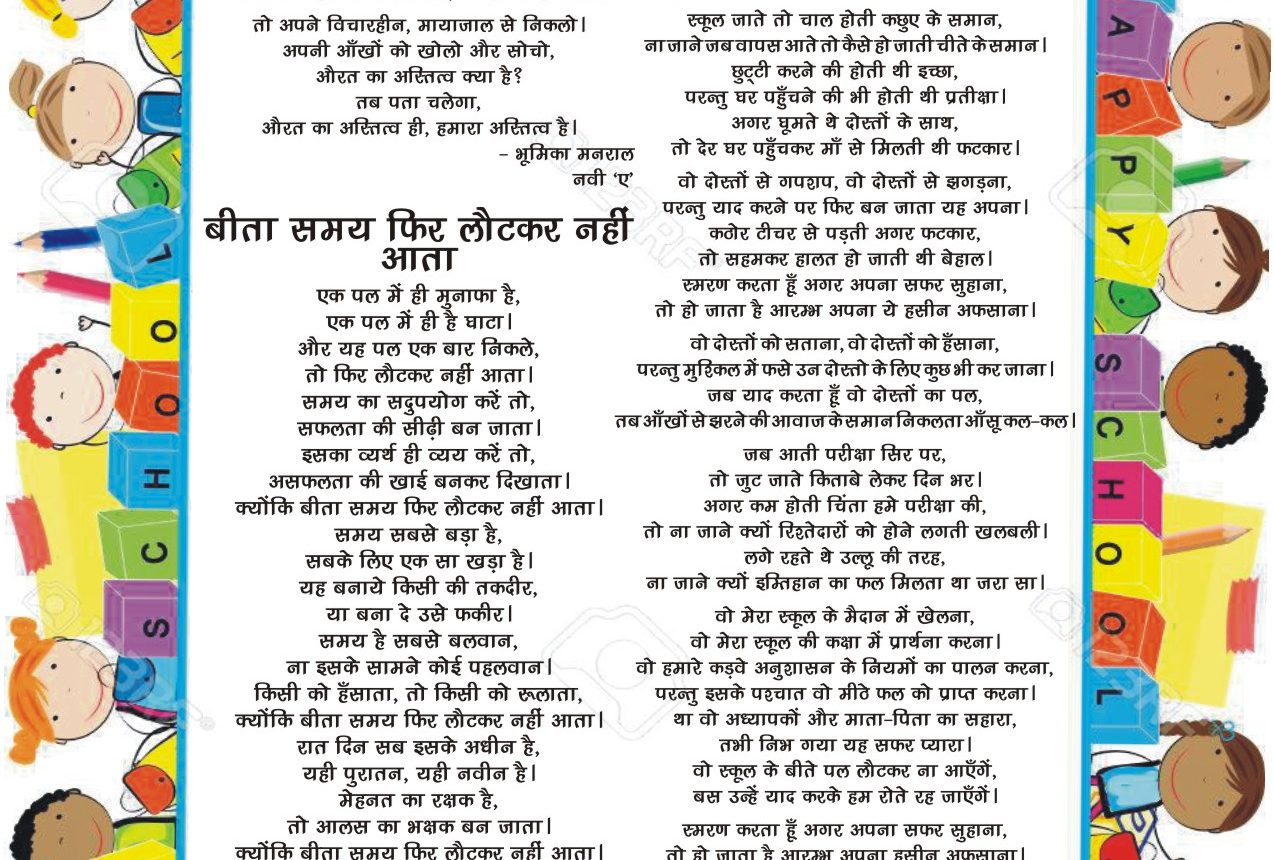 तो अपने विचारहीन, मायाजाल से निकलो।
अपनी आँखों को खोलो और सोचो,
औरत का अस्तित्व क्या है?
तब पता चलेगा,
औरत का अस्तित्व ही, हमारा अस्तित्व है।
– भूमिका मनराल
नवी ‘ए’
बीता समय फिर लौटकर नहीं
आता
एक पल में ही मुनाफा है,
एक पल में ही है घाटा।
और यह पल एक बार निकले,
तो फिर लौटकर नहीं आता।
समय का सदुपयोग करें तो,
सफलता की सीढ़ी बन जाता।
इसका व्यर्थ ही व्यय करें तो,
असफलता की खाई बनकर दिखाता।
क्योंकि बीता समय फिर लौटकर नहीं आता।
समय सबसे बड़ा है,
सबके लिए एक सा खड़ा है।
यह बनाये किसी की तकदीर,
या बना दे उसे फकीर।
समय है सबसे बलवान,
ना इसके सामने कोई पहलवान।
किसी को हँसाता, तो किसी को रूलाता,
क्योंकि बीता समय फिर लौटकर नहीं आता।
रात दिन सब इसके अधीन है,
यही पुरातन, यही नवीन है।
मेहनत का रक्षक है,
तो आलस का भक्षक बन जाता।
क्योंकि बीता समय फिर लौटकर नहीं आता।
स्कूल जाते तो चाल होती कछुए के समान,
ना जाने जब वापस आते तो कैसे हो जाती चीते के समान।
छुट्टी करने की होती थी इच्छा,
परन्तु घर पहुँचने की भी होती थी प्रतीक्षा।
अगर घूमते थे दोस्तों के साथ,
तो देर घर पहुँचकर माँ से मिलती थी फटकार।
वो दोस्तों से गपशप, वो दोस्तों से झगड़ना,
परन्तु याद करने पर फिर बन जाता यह अपना।
कठोर टीचर से पड़ती अगर फटकार,
तो सहमकर हालत हो जाती थी बेहाल।
स्मरण करता हूँ अगर अपना सफर सुहाना,
तो हो जाता है आरम्भ अपना ये हसीन अफसाना।
वो दोस्तों को सताना, वो दोस्तों को हँसाना,
परन्तु मुश्किल में फसे उन दोस्तो के लिए कुछ भी कर जाना।
जब याद करता हूँ वो दोस्तों का पल,
तब आँखों से झरने की आवाज के समान निकलता आँसू कल–कल।
जब आती परीक्षा सिर पर,
तो जुट जाते किताबे लेकर दिन भर।
अगर कम होती चिंता हमे परीक्षा की,
तो ना जाने क्यों रिश्तेदारों को होने लगती खलबली।
लगे रहते थे उल्लू की तरह,
ना जाने क्यों इम्तिहान का फल मिलता था जरा सा।
वो मेरा स्कूल के मैदान में खेलना,
वो मेरा स्कूल की कक्षा में प्रार्थना करना।
वो हमारे कड़वे अनुशासन के नियमों का पालन करना,
परन्तु इसके पश्चात वो मीठे फल को प्राप्त करना।
था वो अध्यापकों और माता–पिता का सहारा,
तभी निभ गया यह सफर प्यारा।
वो स्कूल के बीते पल लौटकर ना आएँगें,
बस उन्हें याद करके हम रोते रह जाएँगें।
स्मरण करता हूँ अगर अपना सफर सुहाना,
तो हो जाता है आरम्भ अपना हसीन अफसाना।
L
O
O
H
C
S
A
P
P
Y
S
C
H
O
O
L